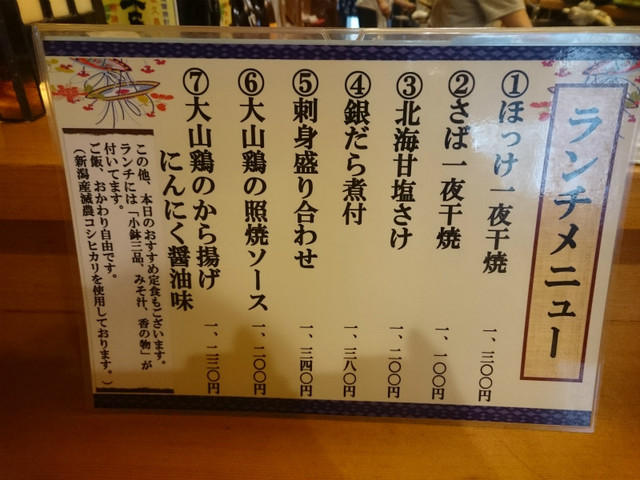 ランチメニュー
①ほっけ一夜干焼 一、三〇〇円
②さば一夜干焼 一、一〇〇円
③北海甘塩さけ 一、二〇〇円
④銀だら煮付 一、三八〇円
⑤刺身盛り合わせ 一、三四〇円
⑥大山鶏の照焼ソース 一、二〇〇円
⑦大山鶏のから揚げ
にんにく醤油味 一、二三〇円
この他、本日のおすすめ定食もございます。
ランチには「小鉢三品、みそ汁、香の物」が
付いてます。
ご飯、おかわり自由です。
（新潟産減農コシヒカリを使用しております。）